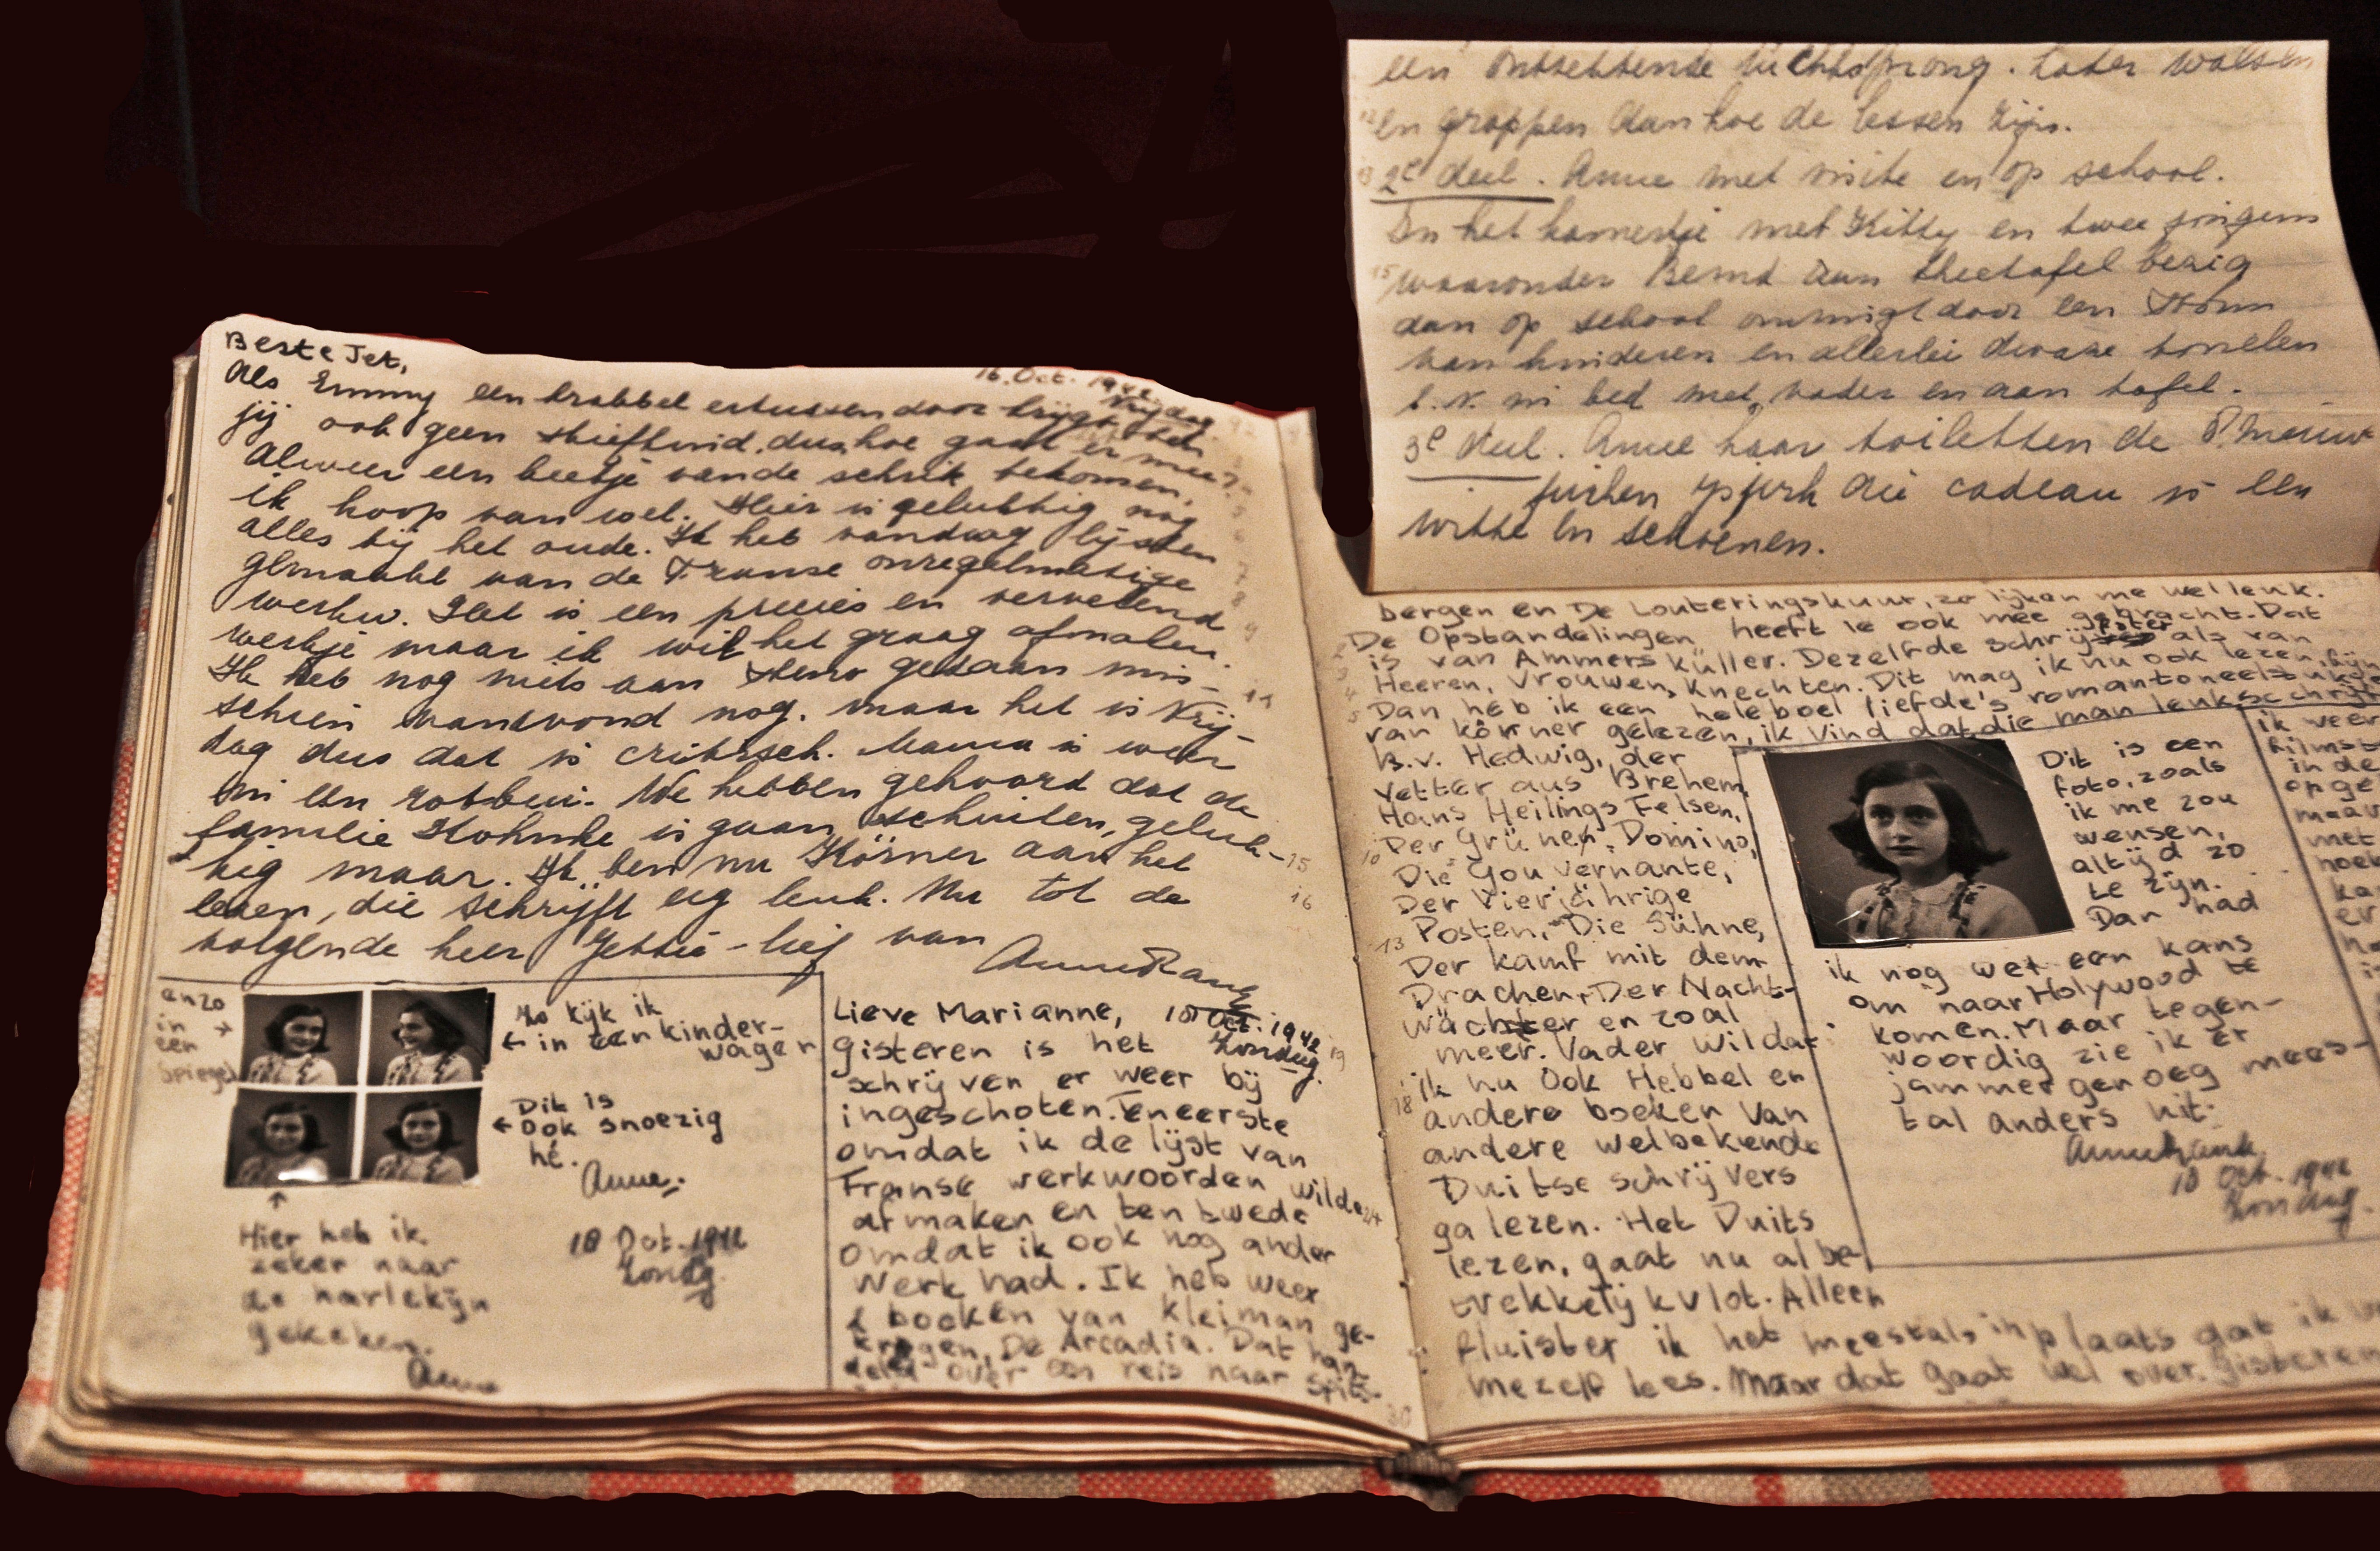 Beste Jet,
16. Oct. 1942
Vrijdag.
Als Emmy een krabbel ertussendoor krijgt
jij ook geen stiefkind, dus hoe gaat er mee?
Alweer een beetje van de schrik bekomen,
ik hoop van wel. Hier is gelukkig nog
alles bij het oude. Ik heb vandaag lijsten
gemaakt van de Franse onregelmatige
werkw. Het is een precies en vervelend
werkje maar ik wil het graag afmaken.
Ik heb nog niets aan Steno gedaan mis-
schien vanavond nog. maar het is Vrij-
dag dus dat is critisch. Mama is weer
in een robbui. We hebben gehoord dat de
familie Kohnke is gaan schuilen, geluk-
kig maar. Ik ben nu Körner aan het
lezen, die schrijft erg leuk. Nu tot de
volgende keer Jettie-lief van
Anne Frank
enzo
in
een
spiegel
Zo kijk ik
← in een kinder-
wagen
Dit is
← ook snoezig
hé.
Anne.
Hier heb ik
zeker naar
de harlekijn
gekeken.
Anne
18 Oct. 1942
Zondag.
Lieve Marianne,
18 Oct. 1942
Zondag.
gisteren is het
schrijven er weer bij
ingeschoten. Teneerste
omdat ik de lijst van
Franse werkwoorden wilde
afmaken en ten twede
omdat ik ook nog ander
werk had. Ik heb weer
2 boeken van Kleiman ge-
kregen, De Arcadia. Dat han-
delt over een reis naar Spits-
een ontzettende luchtsprong. Later walsen
en grappen dan hoe de lessen zijn.
2e deel. Anne met visite en op school.
In het kamertje met Kitty en twee jongens
waaronder Bernd aan theetafel bezig
dan op school omringd door een stroom
van kinderen en allerlei dwaze tonelen
b.v. in bed met vader en aan tafel.
3e deel. Anne haar toiletten de 8 nieuwe
jurken ijsjurk die cadeau is een
witte en schoenen.
bergen en De Louteringskuur, zo lijken me wel leuk.
De Opstandelingen heeft ie ook mee gebracht. Dat
is van Ammers Küller. Dezelfde schrijfster als van
Heeren, Vrouwen, Knechten. Dit mag ik nu ook lezen, fijn
Dan heb ik een heleboel liefde's romantoneelstukjes
van körner gelezen, ik vind dat die man leuk schrijft
B.v. Hedwig, der
Vetter aus Brehem,
Hans Heilings Felsen,
Der Grünen Domino,
Die Gouvernante,
Der Vierjährige
Posten, Die Sühne,
Der kamf mit dem
Drachen, Der Nacht-
wächter en zoal
meer. Vader wil dat
ik nu ook Hebbel en
andere boeken van
andere welbekende
Duitse schrijvers
ga lezen. Het Duits
lezen, gaat nu al be-
trekkelijk vlot. Alleen
fluister ik het meestal, inplaats dat ik
mezelf lees. Maar dat gaat wel over. gisteren
Dit is een
foto, zoals
ik me zou
wensen,
altijd zo
te zijn.
Dan had
ik nog wel een kans
om naar Holywood te
komen. Maar tegen-
woordig zie ik er
jammer genoeg mees-
tal anders uit.
Anne Frank
18 Oct. 1942
Zondag.
ik weer
filmst
in de
opge
maar
met
hoek
ka
er